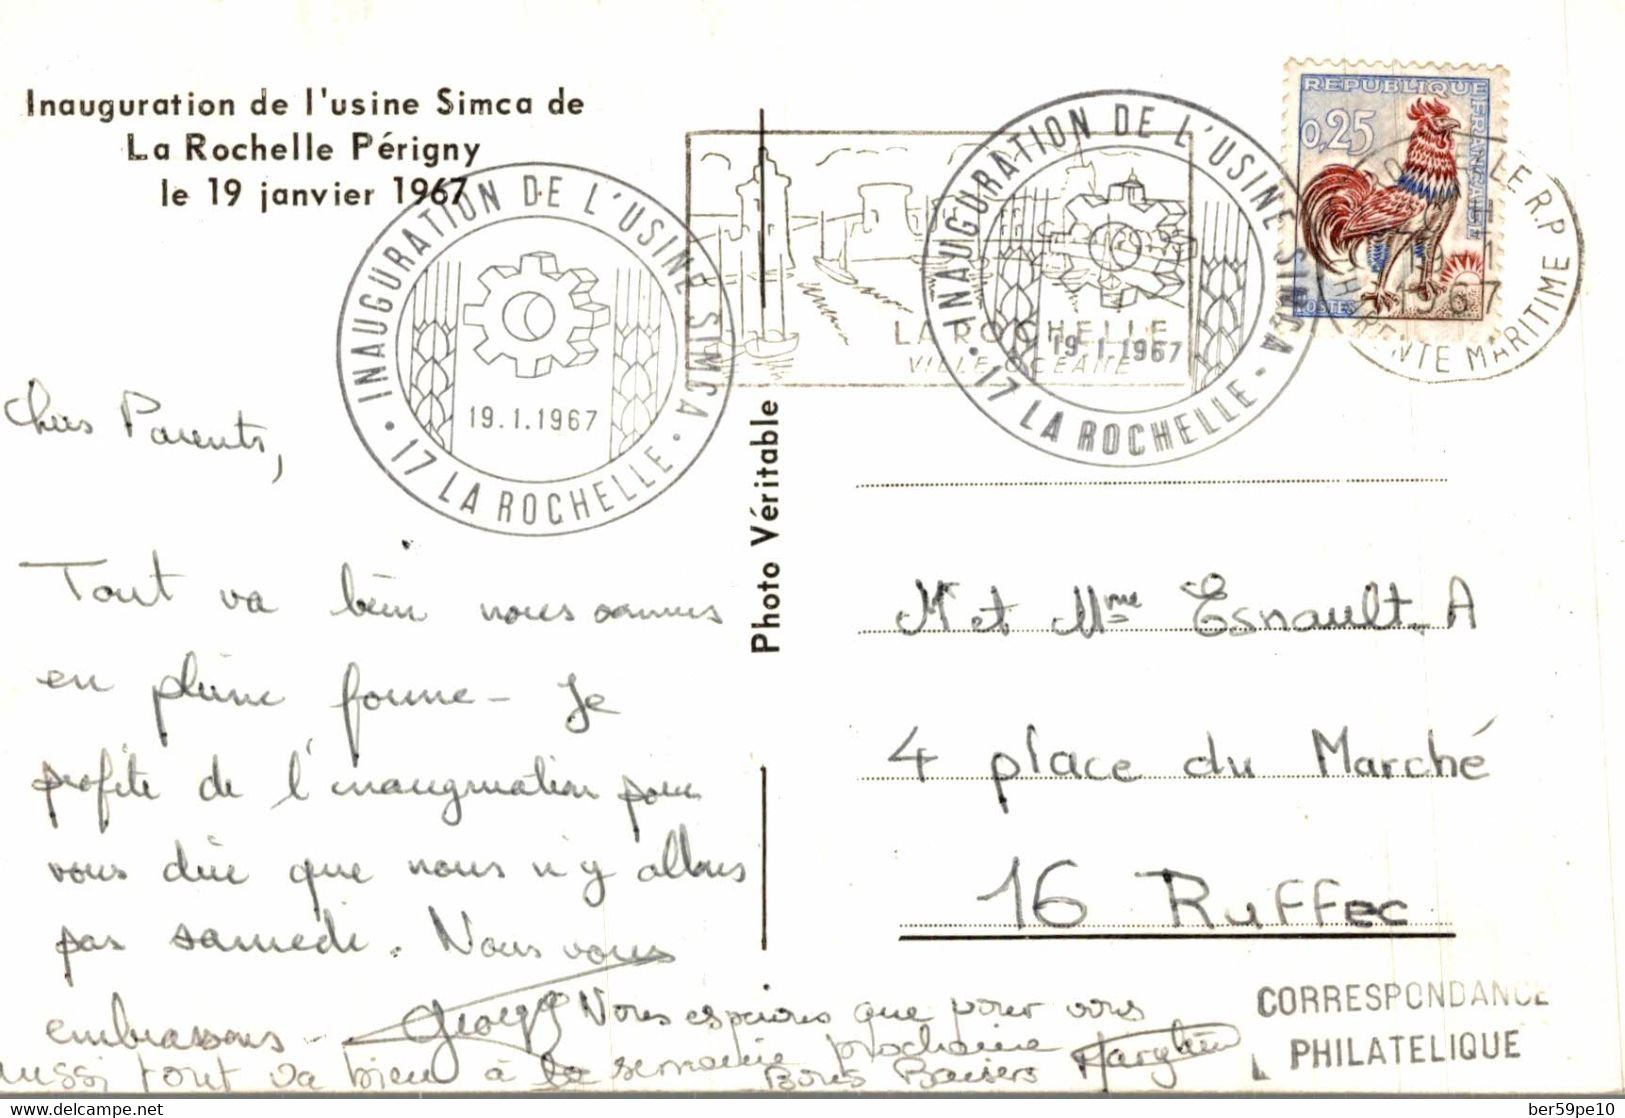 Inauguration de l'usine Simca de
La Rochelle Périgny
le 19 janvier 1967
INAUGURATION DE L'USINE SIMCA
19.1.1967
17 LA ROCHELLE
LA ROCHELLE
VILLE OCEANE
INAUGURATION DE L'USINE SIMCA
19.1.1967
17 LA ROCHELLE
REPUBLIQUE FRANÇAISE
0,25
POSTES
LE R.P.
1967
MARITIME
Chers Parents,
Tout va bien nous sommes
en pleine forme - Je
profite de l'inauguration pour
vous dire que nous n'y allons
pas samedi. Nous vous
embrassons -
Nous espérons que pour vous
aussi tout va bien à la semaine prochaine
Bons Baisers
Photo Véritable
M et Mme Esnault. A
4 place du Marché
16 Ruffec
CORRESPONDANCE
PHILATELIQUE
delcampe.net
ber59pe10